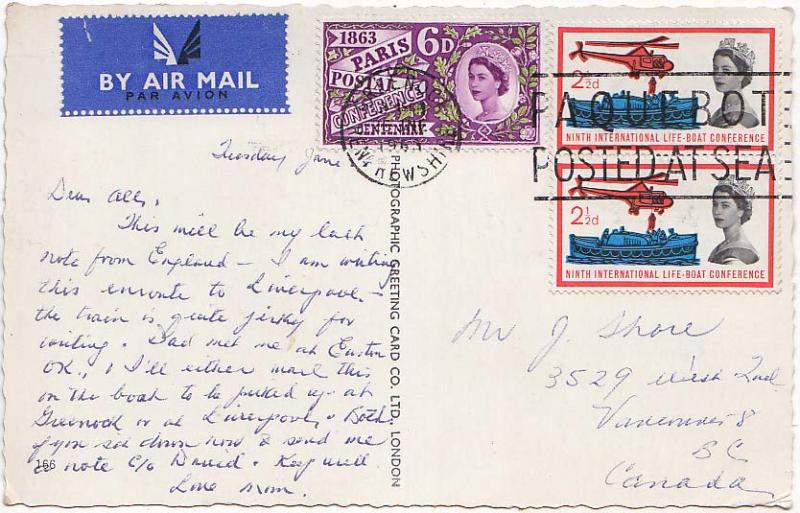 BY AIR MAIL
PAR AVION
1863
PARIS
POSTAL
CONFERENCE
CENTENARY
6D
2½d
NINTH INTERNATIONAL LIFE-BOAT CONFERENCE
2½d
NINTH INTERNATIONAL LIFE-BOAT CONFERENCE
PAQUEBOT
POSTED AT SEA
1963
RENFREWSHIRE
Tuesday June
Dear All,
This will be my last
note from England – I am writing
this enroute to Liverpool –
the train is quite jerky for
writing. Dad met me at Euston
OK., & I'll either mail this
on the boat to be picked up at
Greenock or at Liverpool. Both
of you sit down now & send me
a note c/o David. Keep well
Love Mom.
166
PHOTOGRAPHIC GREETING CARD CO. LTD. LONDON
Mr J. Shore
3529 West 2nd
Vancouver 8
BC
Canada